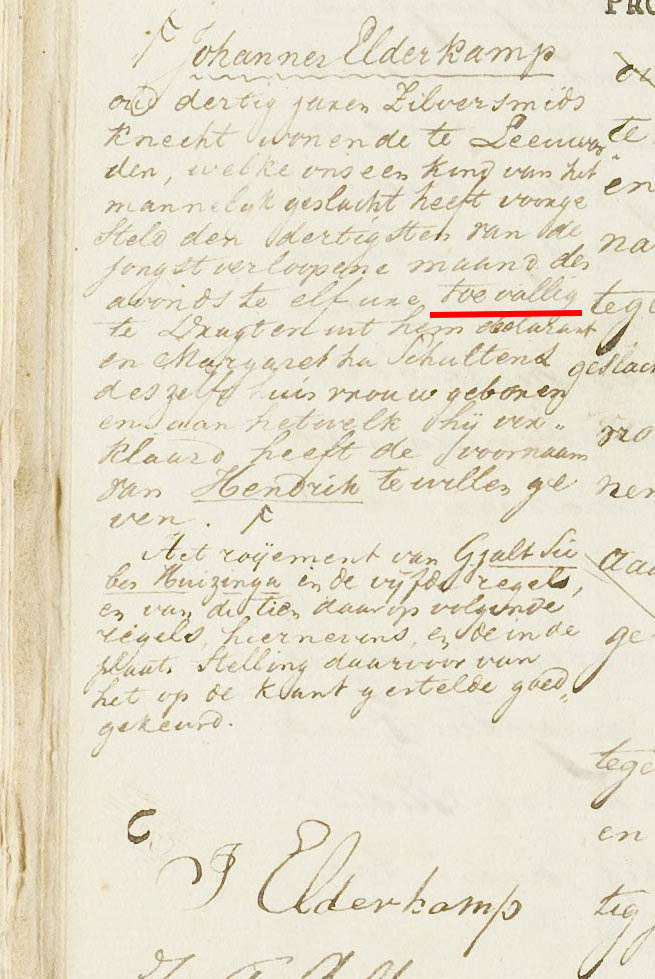 PRO
Johannes Elderkamp
oud dertig jaren Zilversmids
knecht wonende te Leeuwar
den, welke ons een kind van het
mannelijk geslacht heeft voorge
steld den dertigsten van de
jongstverloopene maand des
avonds te elf ure, toevallig
te Dragten uit hem declarant
en Margaretha Schultens
deszelfs huisvrouw geboren
en aan hetwelk hij ver„
klaard heeft de voornaam
van Hendrik te willen ge
ven.
Het roijement van Gjalt Sie
bes Huizinga in de vijfde regels,
en van de tien daarop volgende
regels, hiernevens, en de in de
plaats Stelling daarvoor van
het op de kant gestelde goed„
gekeurd.
J Elderkamp
te
en
na
tege
geslach
vo
nen
aa
ge
tege
en
tig